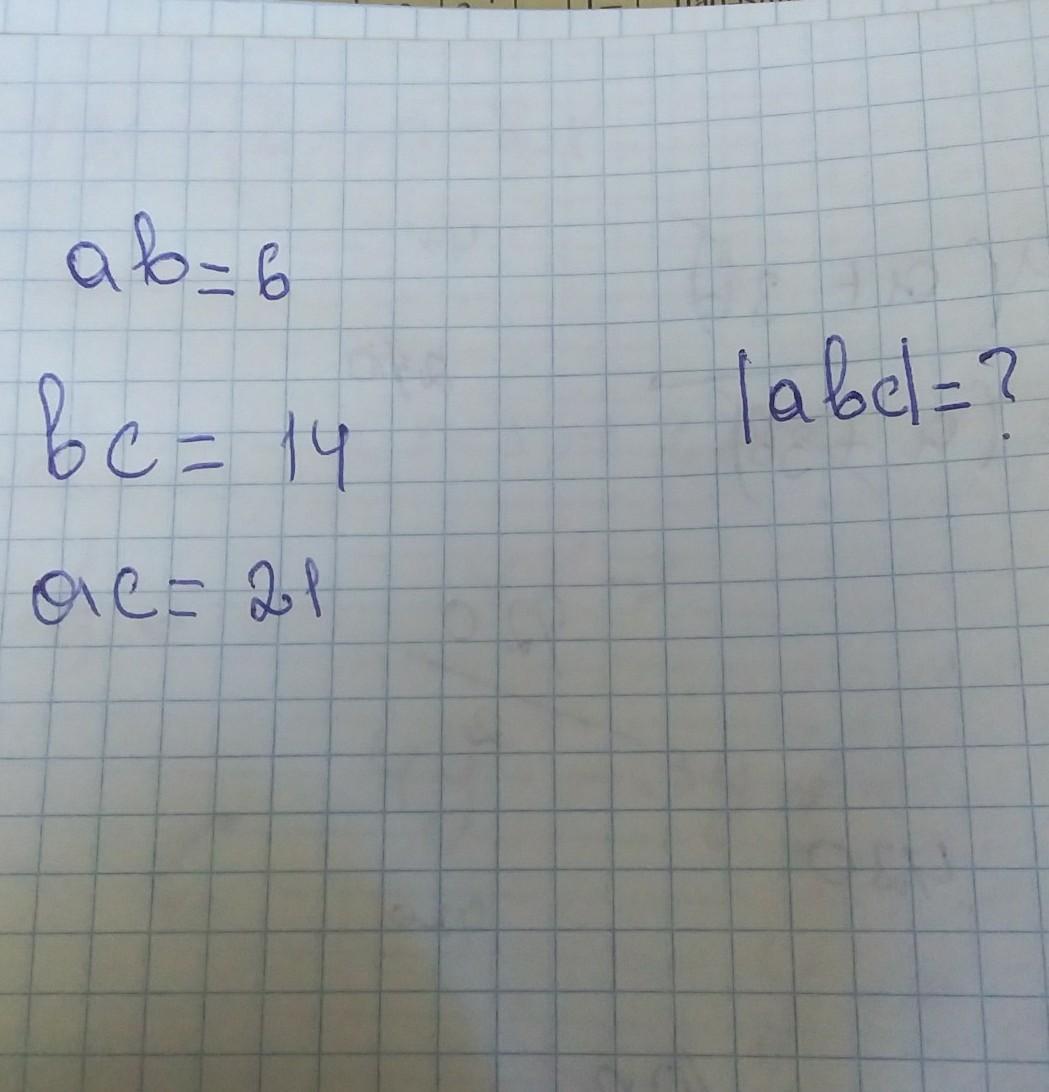 ab=6
|abc|=?
bc= 14
ac= 21